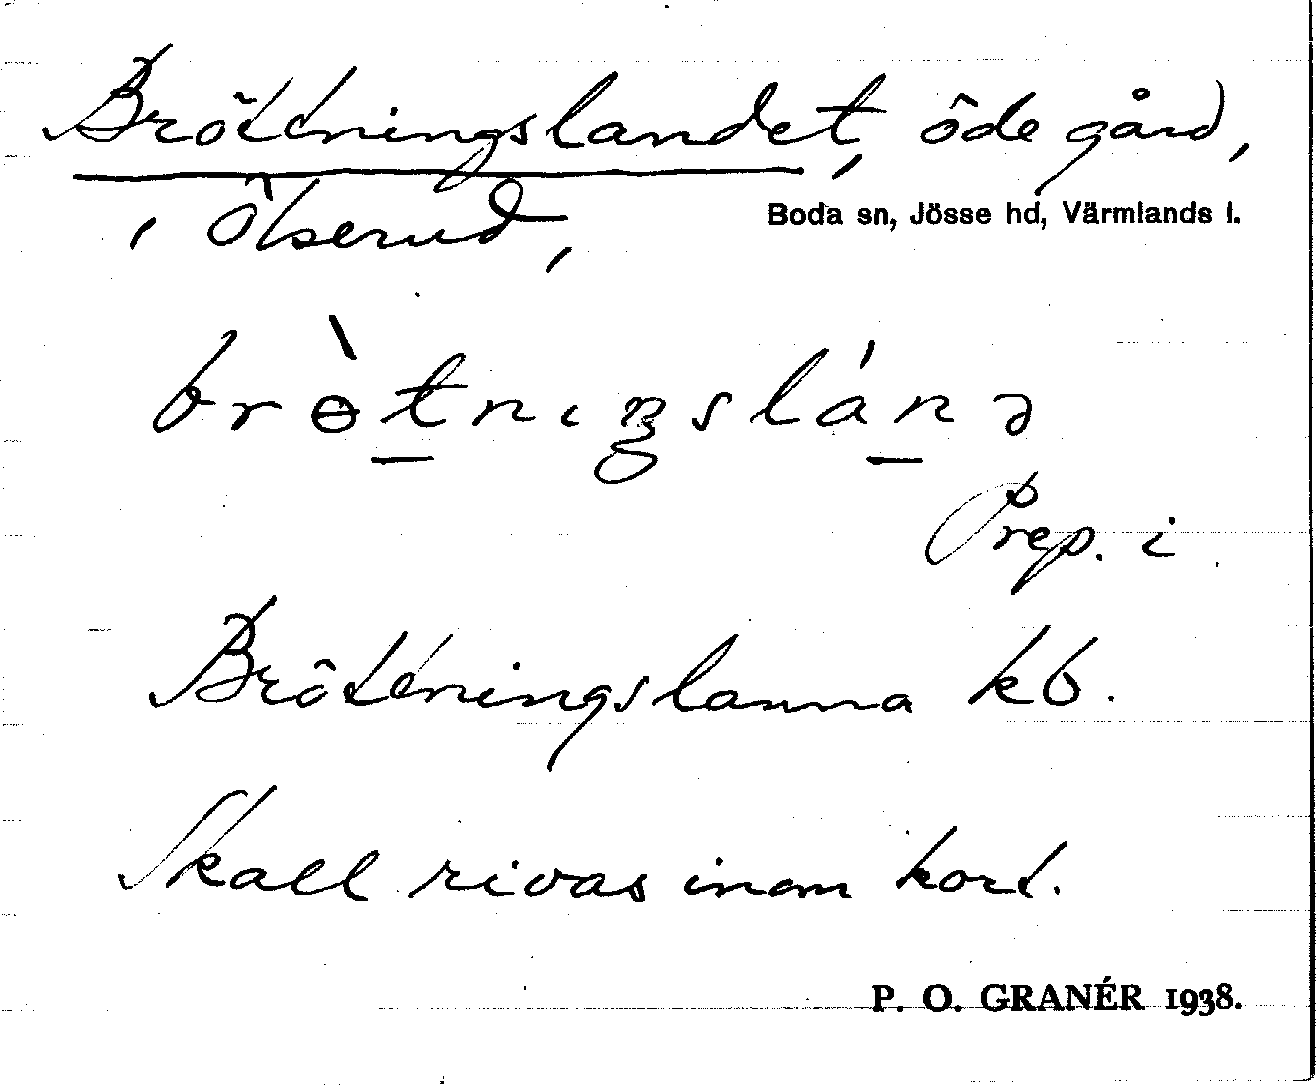 Bröttningslandet, öde gård,
i Ölserud,
Boda sn, Jösse hd, Värmlands l.
brɵ̀t̲nıŋslán̲ə
Prep. i
Bröttningslanna kb.
Skall rivas inom kort.
P. O. GRANÉR 1938.